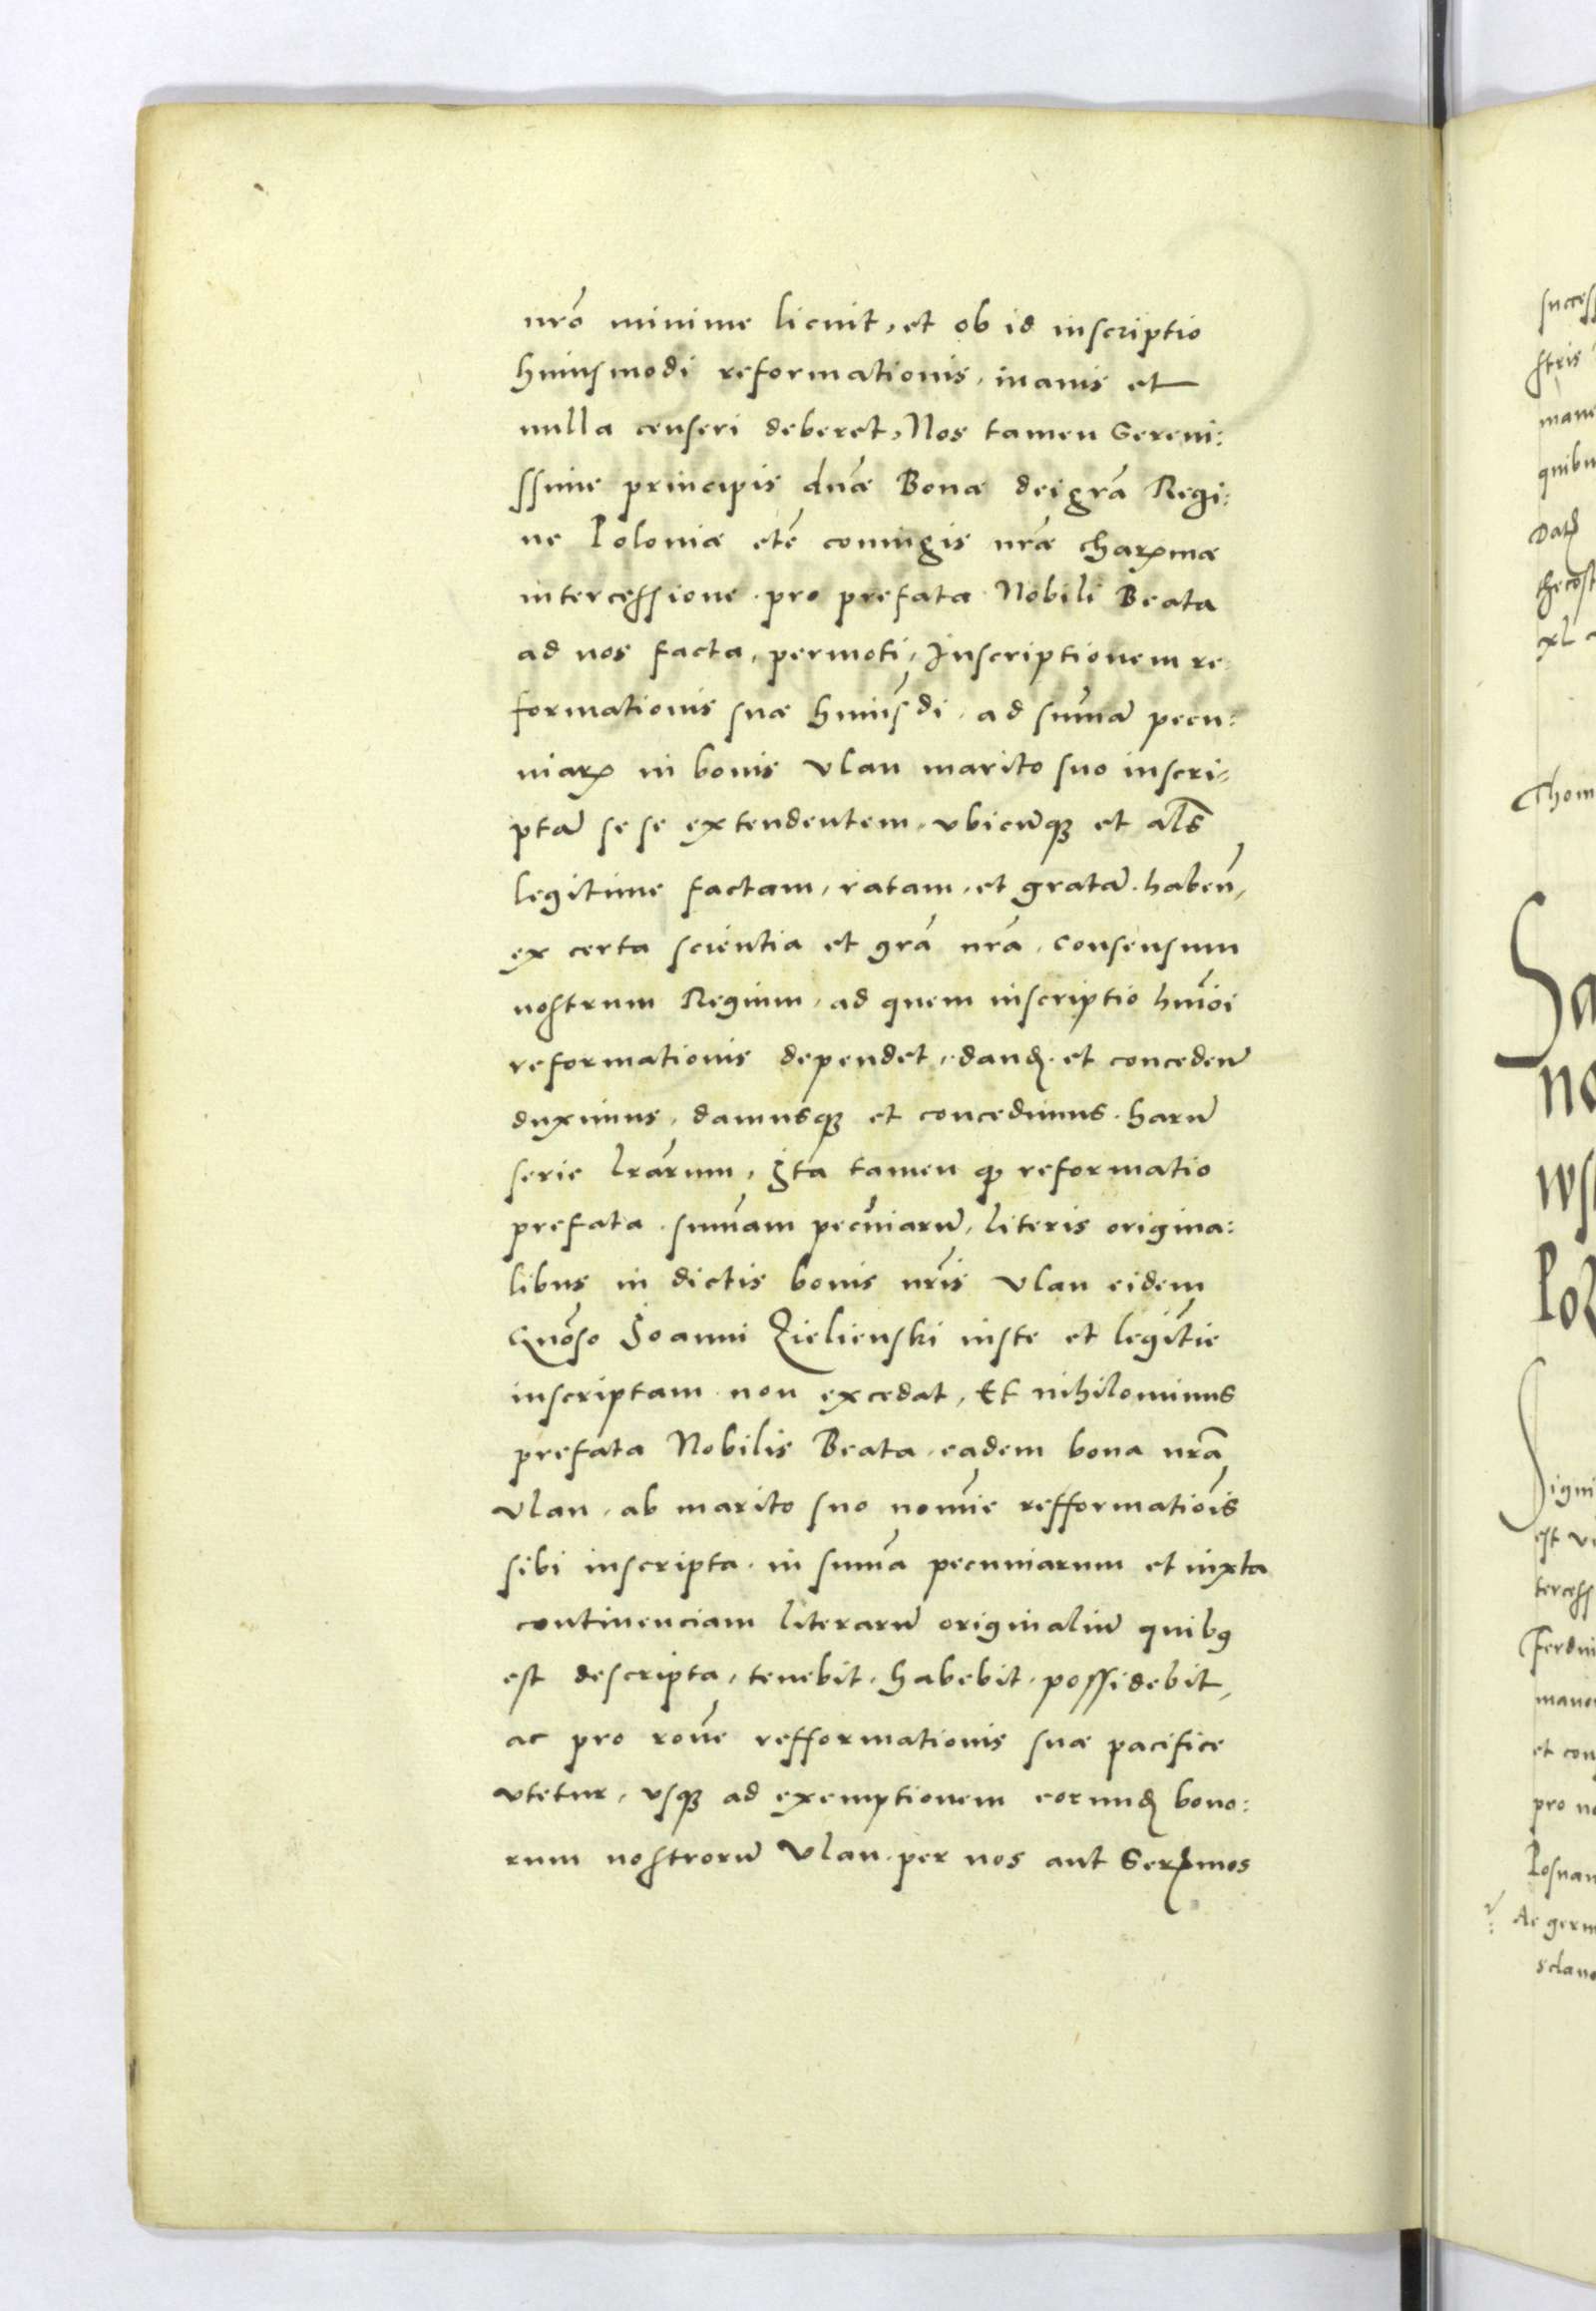 nro minime licuit, et ob id inscriptio
huiusmodi reformationis, inanis et
nulla censeri deberet, Nos tamen Sereni:
ssime principis dnæ Bonæ dei gra Regi:
ne Poloniæ etc coniugis nræ charmæ
intercessione pro prefata Nobili Beata
ad nos facta, permoti, Inscriptionem re
formationis suæ huiusdi, ad summā pecu:
niar in bonis Vlan marito suo inscri=
ptā se se extendentem, vbicūqꝫ et als
legitime factam, ratam, et gratā habeñ,
ex certa scientia et gra nra, consensum
nostrum Regium, ad quem inscriptio hmoi
reformationis dependet, dand et concedeñ
duximus, damusqꝫ et concedimus harū
serie lrarum, Ita tamen qꝫ reformatio
prefata summam pecuniarū, literis origina:
libus in dictis bonis nris Vlan eidem
Gnoso Joanni Zielienski iuste et legitie
inscriptam non excedat, Et nihilominus
prefata Nobilis Beata eadem bona nra
Vlan, ab marito suo nomie refformatiois
sibi inscripta in summa pecuniarum et iuxta
continenciam literarū originaliū quibꝰ
est descripta, tenebit, habebit, possidebit,
ac pro rone refformationis suæ pacifice
vtetur, vsqꝫ ad exemptionem eorund bono:
rum nostrorū Vlan per nos aut Sermos
succes
stris
mane
quibu
Dat
thecost
xl
Thom
Sa
no
ws
Pol
Signi
est v
tercess
Ferdi
mano
et con
pro no
Posnan
Ac germ
sclavo